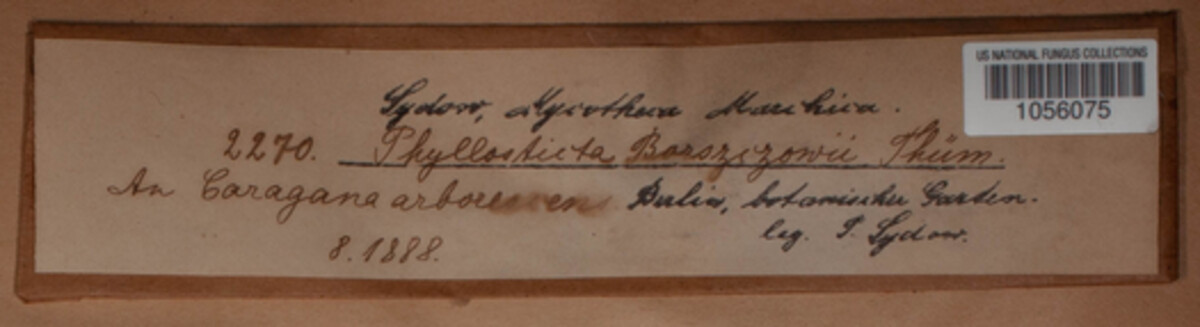 US NATIONAL FUNGUS COLLECTIONS
1056075
Sydow, Mycotheca Marchica.
2270. Phyllosticta Borszczowii Thüm.
An Caragana arborescens Berlin, botanischer Garten.
8.1888. leg. P. Sydow.